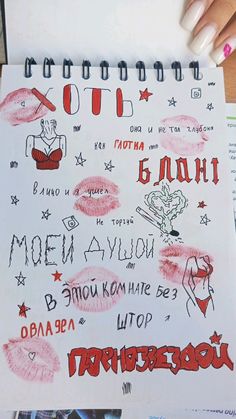 ХОТЬ
она и не так глубоко
как глотка
БЛАНІ
влило и я ушел
Не торгуй
МОЕЙ ДУШОЙ
В ЭТОЙ КОМНАТЕ БЕЗ
ШТОР
ОВЛАДЕЛ
ПОРНОЗВЕЗДОЙ